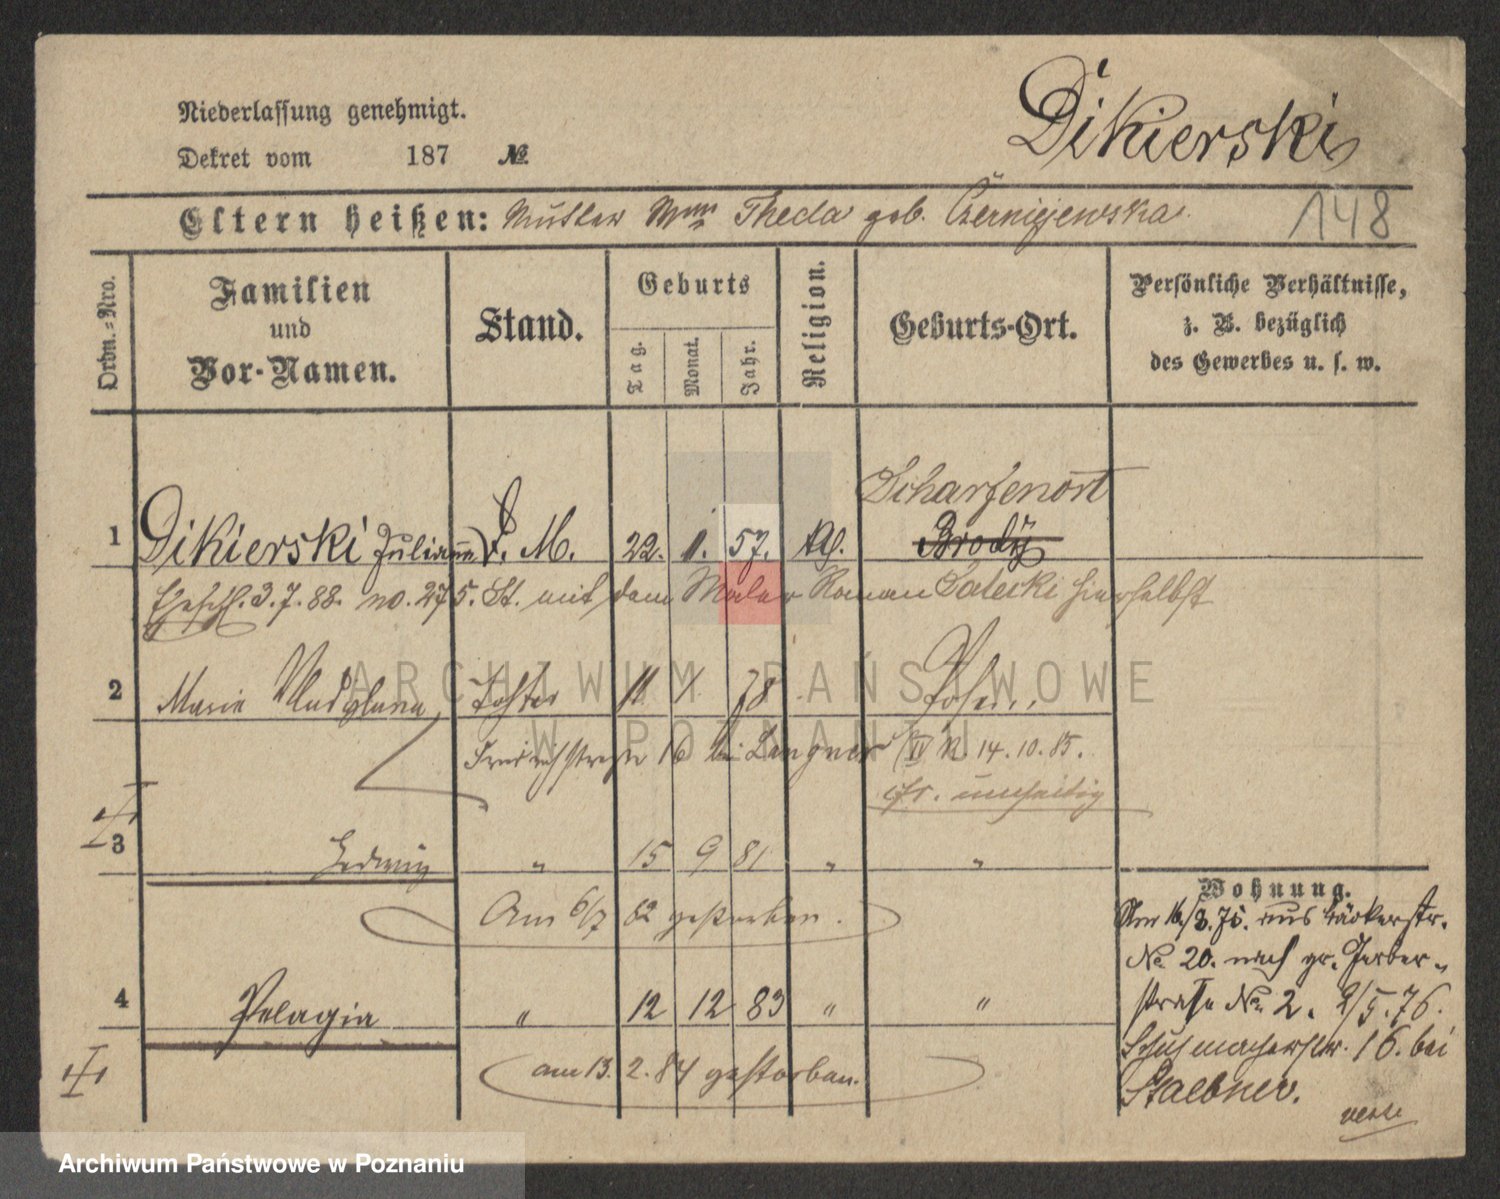 Niederlassung genehmigt.
Dikierski
Dekret vom 187 №
Eltern heißen: Mutter Wwe Theda geb. Czerniejewska
148
Ordn.-Nro.
Familien
und
Vor-Namen.
Stand.
Geburts
Tag.
Monat.
Jahr.
Religion.
Geburts-Ort.
Persönliche Verhältnisse,
z. B. bezüglich
des Gewerbes u. s. w.
Scharfenort
1 Dikierski Julianna D. M. 22. 1. 57. Kth. Brody
Eheschl. 3. 7. 88. no. 275. St. mit dem Maler Roman hierselbst
2 Marie Magdalena Tochter 11 1 78 Posen
Friedrichstraße 16 bei Langner IV R. 14. 10. 85.
cfr. umseitig
3 Hedwig " 15 9 81 " "
Am 6/7 82 gestorben.
4 Pelagia " 12 12 83 " "
am 13. 2. 84 gestorben.
Wohnung.
Am 16/8. 75. aus Bäckerstr.
№ 20. nach gr. Gerber-
straße № 2. 2/5. 76.
Schuhmacherstr. 16. bei
Staebner.
verte
ARCHIWUM PAŃSTWOWE
W POZNANIU
Archiwum Państwowe w Poznaniu